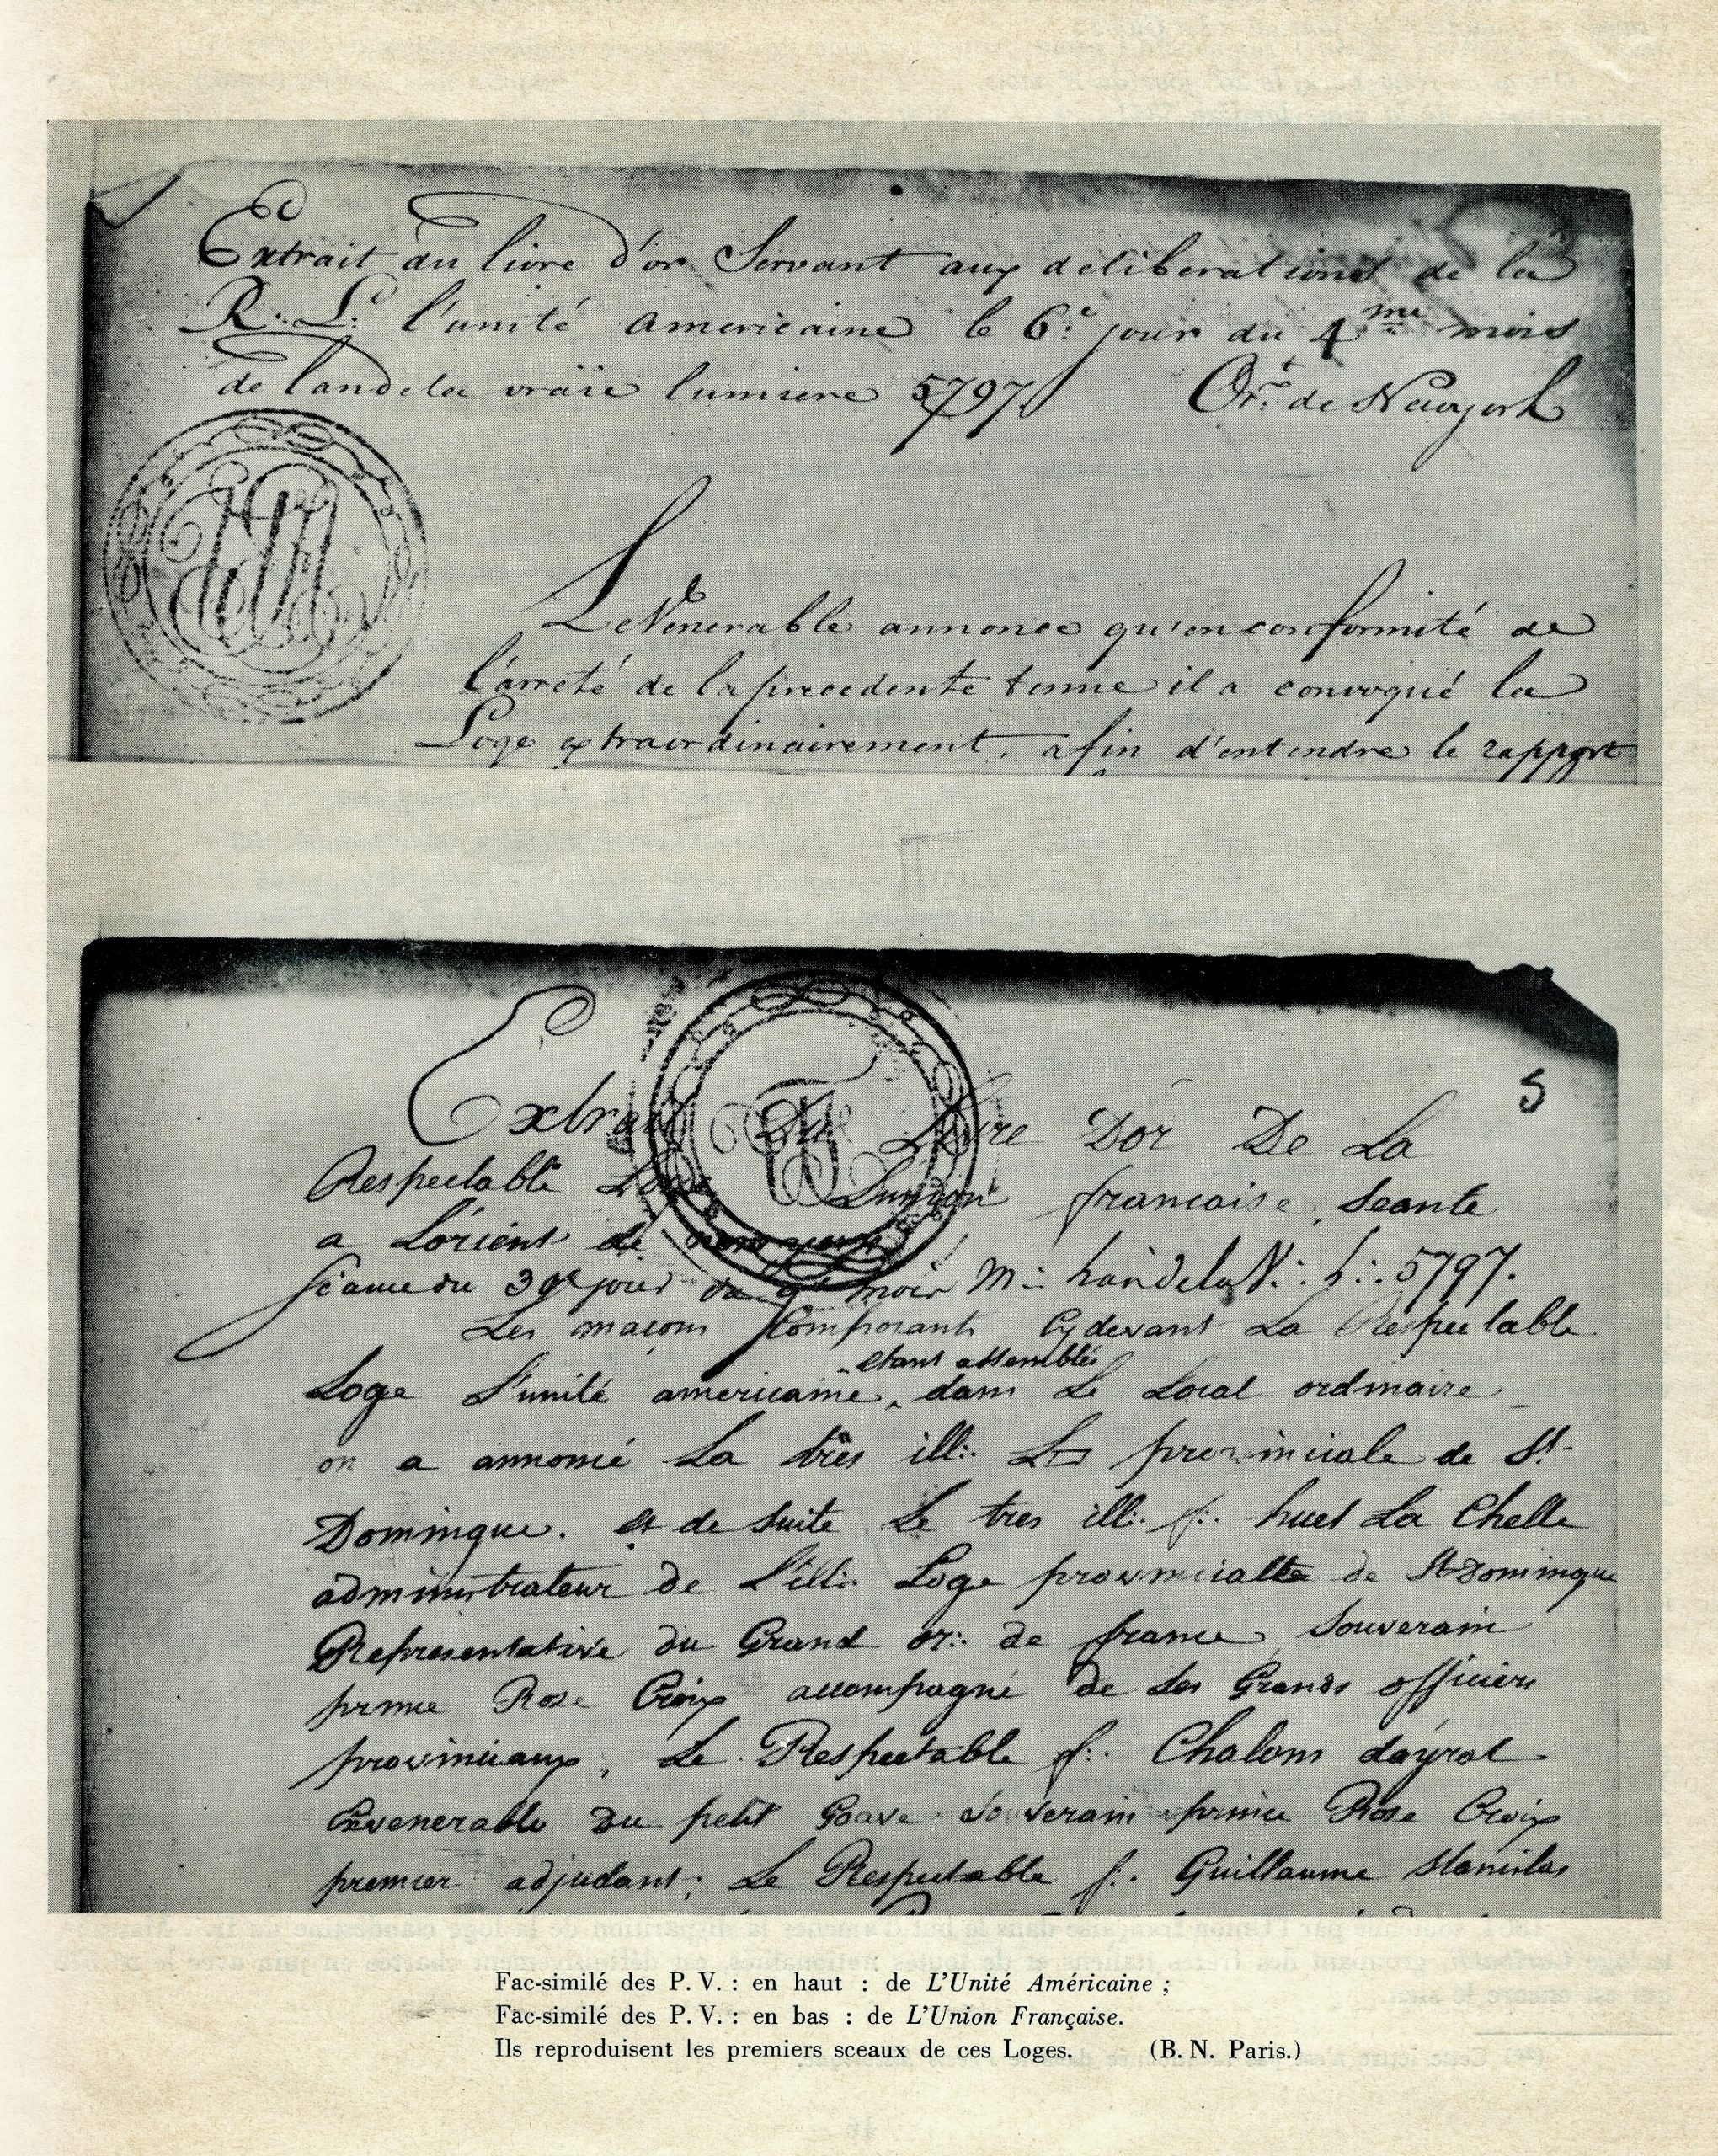 Extrait du livre d'or Servant aux deliberations de la
R∴ L∴ l'unité americaine le 6e jour du 4me mois
de landela vraïe lumiere 5797 Ort de Newyork
Le Venerable annonce qu'en conformité de
l'arreté de la precedente tenue il a convoqué la
Loge extraordinairement, afin d'entendre le rapport
5
Extrait Du Livre Dor De La
Respectable Loge Lunion francaise, Seante
a Lorient de new york
Séance du 3 jour du mois M∴ Lan de la V∴ L∴ 5797.
Les macons Composants Cy devant La Respectable
etant assemblés
Loge L'unité americaine, dans Le Local ordinaire
on a annoncé La très ill∴ L▭ provinciale de St
Domingue. et de suite Le tres ill∴ f∴ huet La Chelle
administrateur de L'ill∴ Loge provincialle de St Domingue
Representative du Grand or∴ de france Souverain
prince Rose Croix accompagné de ses Grands officiers
provinciaux, Le Respectable f∴ Chalons dayral
Exvenerable du petit Goave Souverain prince Rose Croix
premier adjudant; Le Respectable f∴ Guillaume Stanislas
Fac-similé des P. V. : en haut : de L'Unité Américaine ;
Fac-similé des P. V. : en bas : de L'Union Française.
Ils reproduisent les premiers sceaux de ces Loges. (B. N. Paris.)